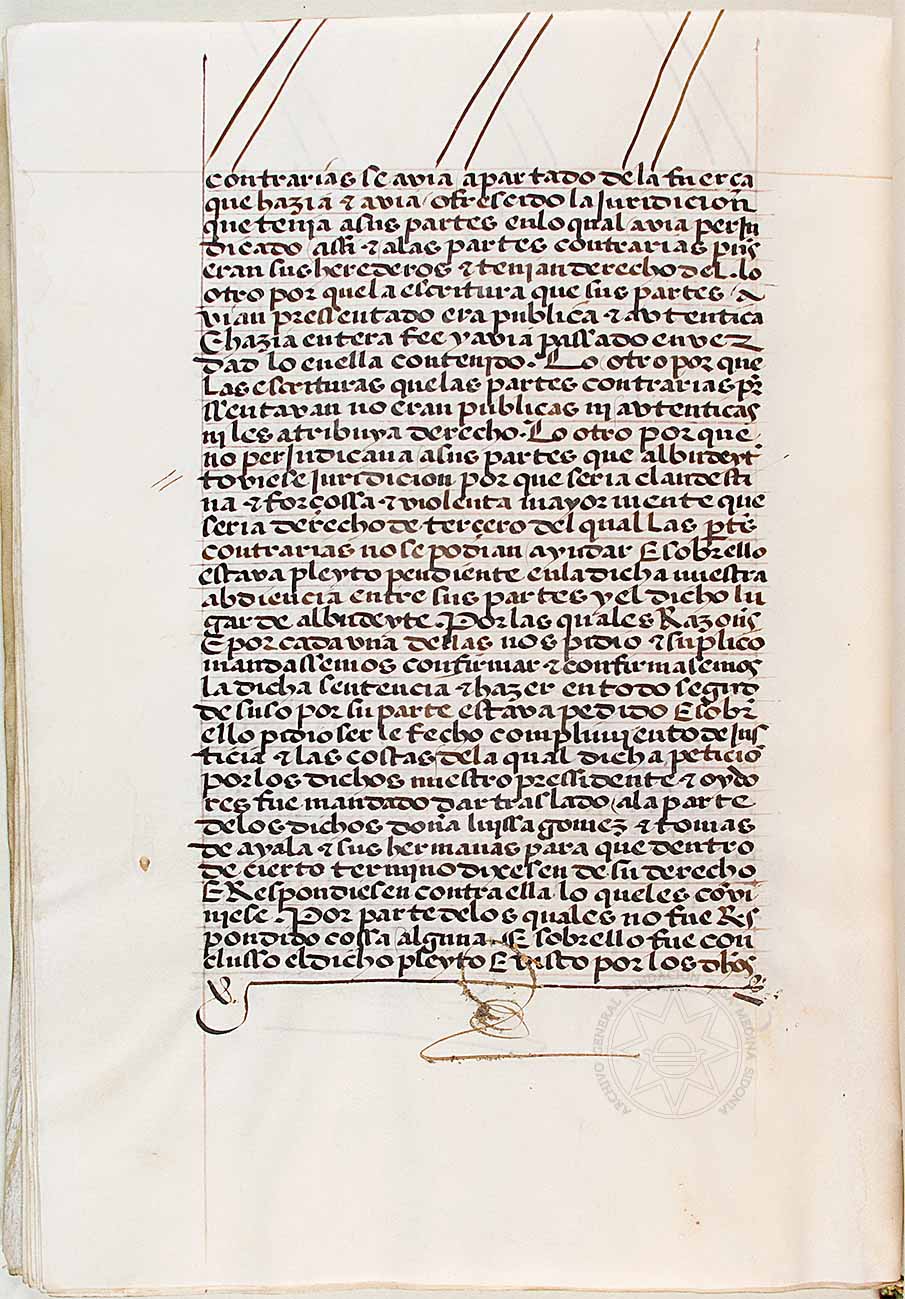 contrarias se avia apartado dela fuerça
que hazia & avia ofrescido la Juridicion
que tenia a sus partes enlo qual avia perju
dicado assi & alas partes contrarias pues
eran sus herederos & tenian derecho del lo
otro por que la escritura que sus partes a
vian pressentado era publica & avtentica
E hazia entera fee y avia passado en ver
dad lo en ella contenido. Lo otro por que
las escrituras que las partes contrarias pre
ssentavan no eran publicas ni avtenticas
ni les atribuya derecho. Lo otro por que
no perJudicava a sus partes que albudeyt
toviese Juridicion por que seria clandesti
na & forçossa & violenta mayor mente que
seria derecho de terçero del qual las ptes
contrarias no se podian ayudar E sobrello
estava pleyto pendiente enla dicha nuestra
abdiencia entre sus partes y el dicho lu
gar de albudeyte. Por las quales Razones
E por cada vna dellas nos pidio & suplico
mandassemos confirmar & confirmasemos
la dicha sentencia & hazer en todo segund
de suso por su parte estava pedido E sobr
ello pidio ser le fecho complimiento de jus
ticia & las costas dela qual dicha peticio
por los dichos nuestro pressidente & oydo
res fue mandado dar traslado ala parte
delos dichos doña luissa gomez & tomas
de ayala & sus hermanas para que dentro
de cierto termino dixesen de su derecho
E Respondiesen contra ella lo que les covi
niese. Por parte delos quales no fue Res
pondido cossa alguna. E sobrello fue con
clusso el dicho pleyto E visto por los dhos
ARCHIVO GENERAL FUNDACION CASA MEDINA SIDONIA